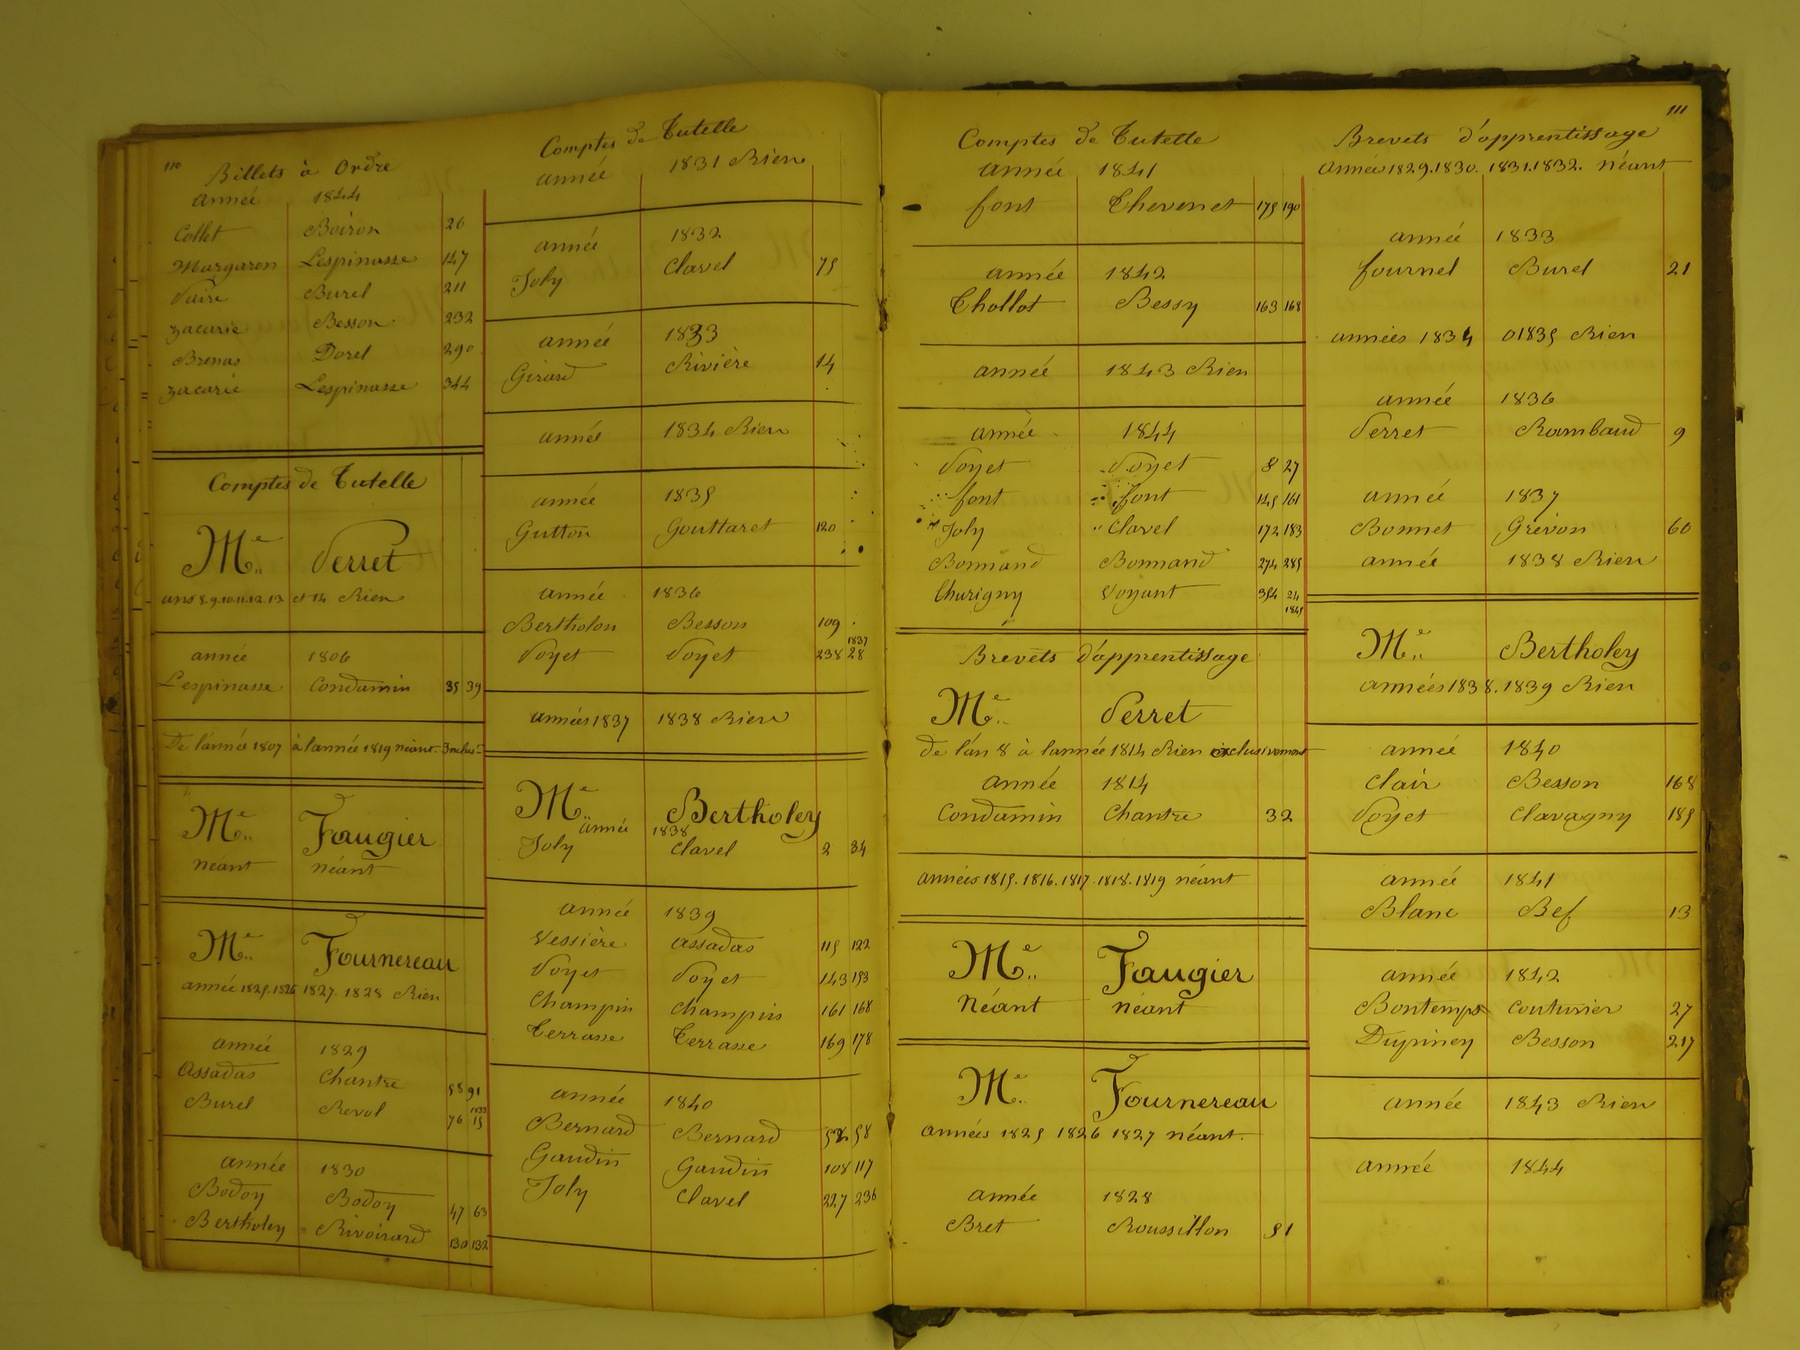 110
Billets à Ordre
année 1844
Collet Boiron 26
Margaron Lespinasse 147
Vaire Burel 211
Zacarie Besson 232
Brenas Dorel 290
Zacarie Lespinasse 344
Comptes de Tutelle
Me Verret
ans 8.9.10.11.12.13 et 14 Rien
année 1806
Lespinasse Condamin 35 39
De l'année 1807 à l'année 1819 néant
Me Faugier
néant néant
Me Fournereau
année 1825.1826 1827.1828 Rien
année 1829
Assadas Chantre 58 91
Burel Revol 76 15
année 1830
Bodoy Bodoy 47 63
Bertholey Rivoirard 130 132
Comptes de Tutelle
année 1831 Rien
année 1832
Joly Clavel 75
année 1833
Girard Rivière 14
année 1834 Rien
année 1835
Gutton Gouttaret 120
année 1836
Bertholon Besson 109
1837
Voyet Voyet 238 28
années 1837 1838 Rien
Me Bertholey
année 1838
Joly Clavel 2 34
année 1839
Vessière Assadas 115 122
Voyet Voyet 143 153
Champin Champin 161 168
Terrasse Terrasse 169 178
année 1840
Bernard Bernard 52 58
Gaudin Gaudin 108 117
Joly Clavel 227 236
111
Comptes de Tutelle
année 1841
font Thevenet 175 190
année 1842
Chollot Bessy 163 168
année 1843 Rien
année 1844
Voyet Voyet 8 27
font font 145 161
Joly Clavel 172 183
Bonnand Bonnand 274 285
Churigny Voyant 354 24
1845
Brevets d'apprentissage
Me Verret
de l'an 8 à l'année 1814 Rien exclusivement
année 1814
Condamin Chantre 32
années 1815.1816.1817.1818.1819 néant
Me Faugier
Néant néant
Me Fournereau
années 1825 1826 1827 néant.
année 1828
Bret Roussillon 51
Brevets d'apprentissage
Année 1829.1830.1831.1832. Néant
année 1833
fournel Burel 21
années 1834 01835 Rien
année 1836
Verret Rambaud 9
année 1837
Bonnet Grévon 60
année 1838 Rien
Me Bertholey
années 1838.1839 Rien
année 1840
Clair Besson 168
Voyet Clavagny 185
année 1841
Blanc Bef 13
année 1842
Bontemps Couturier 27
Dupiney Besson 217
année 1843 Rien
année 1844